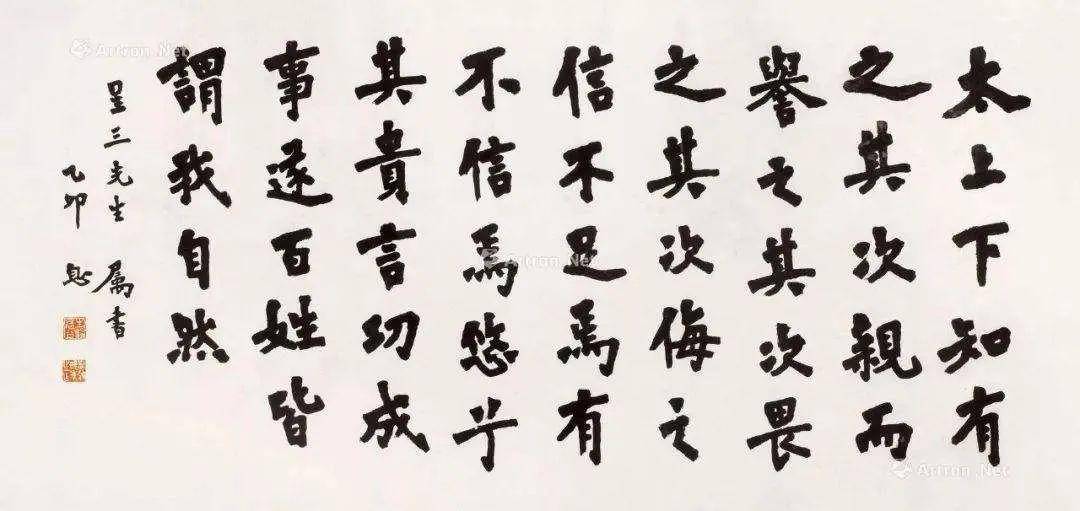 太上下知有
之其次親而
譽之其次畏
之其次侮之
信不足焉有
不信焉悠兮
其貴言功成
事遂百姓皆
謂我自然
呈三先生 属書
乙卯
Artron.Net
Artron.Net
Artron.Net